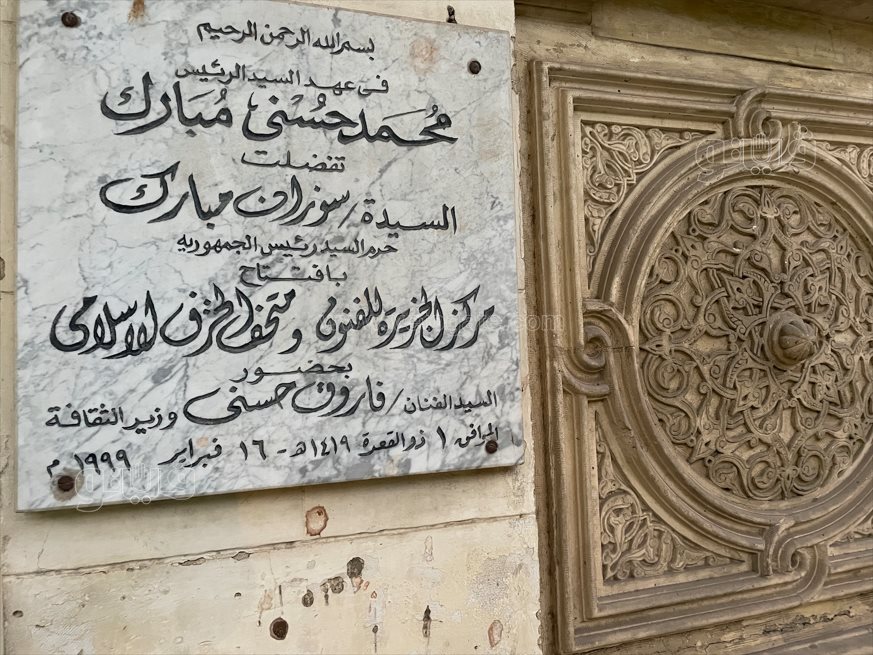 بسم الله الرحمن الرحيم
فى عهد السيد الرئيس
مُحَمد حُسْنى مُبَارك
تفضلت
السيدة / سوزان مبارك
حرم السيد رئيس الجمهوريه
بافتتاح
مركز الجزيرة للفنون ومتحف الخزف الاسلامى
بحضور
السيد الفنان / فاروق حسنى وزير الثقافة
الموافق ١ ذو القعدة ١٤١٩هـ - ١٦ فبراير ١٩٩٩ م